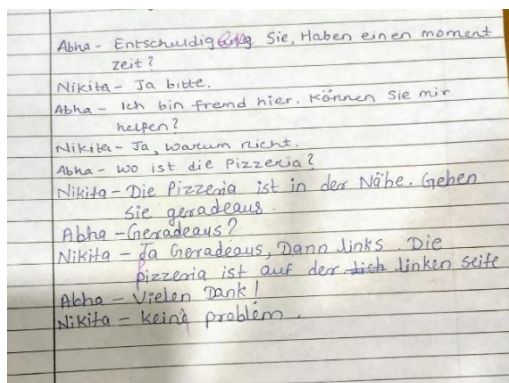 Abha - Entschuldigung Sie, Haben einen moment
zeit?
Nikita - Ja bitte.
Abha - Ich bin fremd hier. Können Sie mir
helfen?
Nikita - Ja, warum nicht.
Abha - wo ist die Pizzeria?
Nikita - Die Pizzeria ist in der Nähe. Gehen
Sie geradeaus.
Abha - Geradeaus?
Nikita - Ja Geradeaus, Dann links. Die
pizzeria ist auf der linken seite
Abha - Vielen Dank!
Nikita - keine problem.